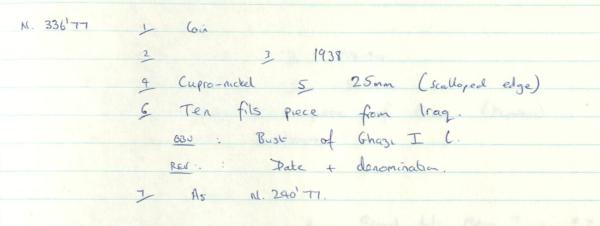 N. 336'77 1 Coin
2 3 1938
4 Cupro-nickel 5 25mm (scalloped edge)
6 Ten fils piece from Iraq.
OBV : Bust of Ghazi I L.
REV. : Date + denomination.
7 As N. 240'77.